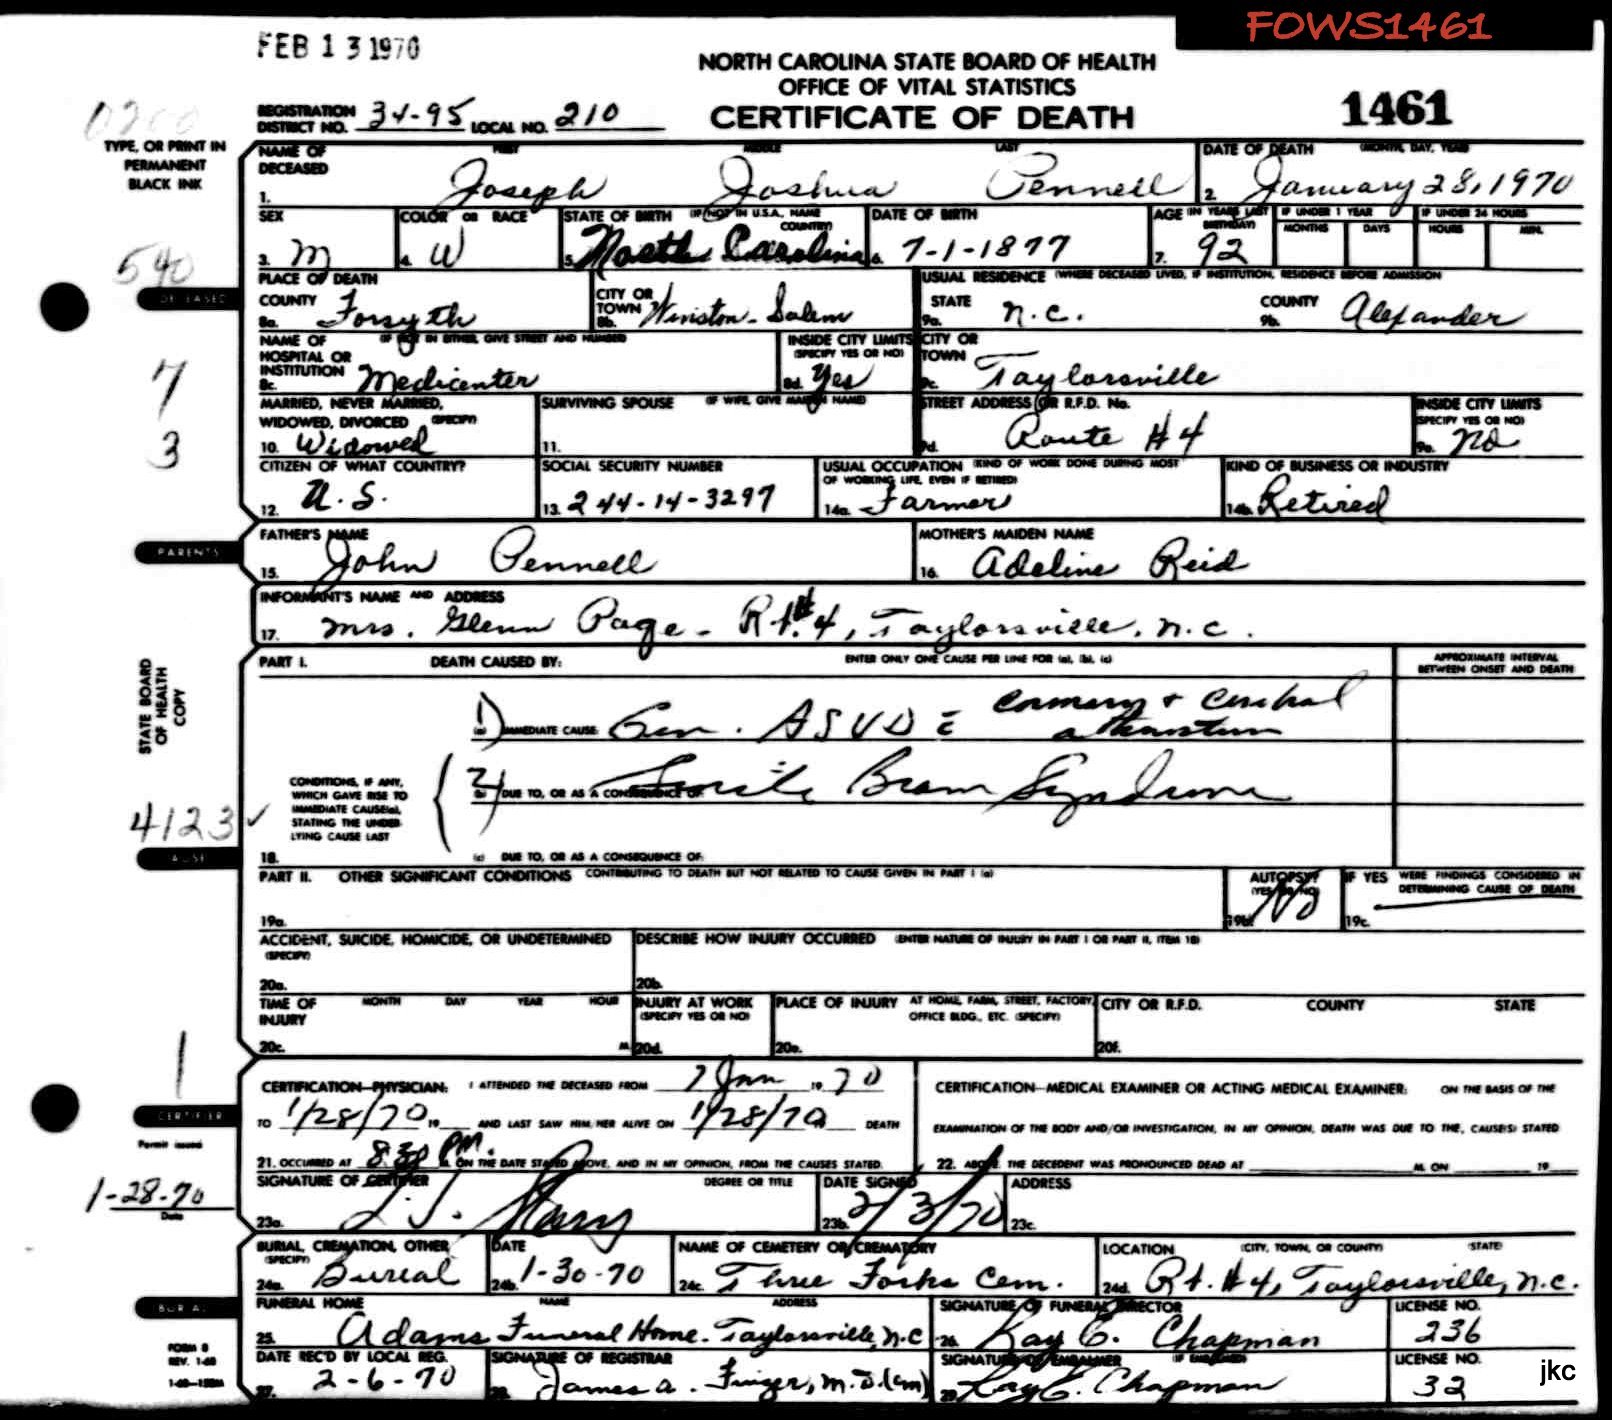 FOWS1461
FEB 13 1970
NORTH CAROLINA STATE BOARD OF HEALTH
OFFICE OF VITAL STATISTICS
CERTIFICATE OF DEATH
1461
0200
REGISTRATION DISTRICT NO. 34-95 LOCAL NO. 210
TYPE, OR PRINT IN PERMANENT BLACK INK
NAME OF DECEASED FIRST MIDDLE LAST
1. Joseph Joshua Pennell
DATE OF DEATH (MONTH, DAY, YEAR)
2. January 28, 1970
SEX 3. M
COLOR OR RACE 4. W
STATE OF BIRTH (IF NOT IN U.S.A., NAME COUNTRY) 5. North Carolina
DATE OF BIRTH 6. 7-1-1877
AGE (IN YEARS LAST BIRTHDAY) 7. 92
IF UNDER 1 YEAR MONTHS DAYS
IF UNDER 24 HOURS HOURS MIN.
540
DECEASED
PLACE OF DEATH
COUNTY 8a. Forsyth
CITY OR TOWN 8b. Winston-Salem
USUAL RESIDENCE (WHERE DECEASED LIVED, IF INSTITUTION, RESIDENCE BEFORE ADMISSION
STATE 9a. N.C.
COUNTY 9b. Alexander
NAME OF HOSPITAL OR INSTITUTION (IF NOT IN EITHER, GIVE STREET AND NUMBER)
8c. Medicenter
INSIDE CITY LIMITS (SPECIFY YES OR NO) 8d. Yes
CITY OR TOWN 9c. Taylorsville
7
3
MARRIED, NEVER MARRIED, WIDOWED, DIVORCED (SPECIFY)
10. Widowed
SURVIVING SPOUSE (IF WIFE, GIVE MAIDEN NAME)
11.
STREET ADDRESS OR R.F.D. No.
9d. Route #4
INSIDE CITY LIMITS (SPECIFY YES OR NO)
9e. No
CITIZEN OF WHAT COUNTRY?
12. U.S.
SOCIAL SECURITY NUMBER
13. 244-14-3297
USUAL OCCUPATION (KIND OF WORK DONE DURING MOST OF WORKING LIFE, EVEN IF RETIRED)
14a. Farmer
KIND OF BUSINESS OR INDUSTRY
14b. Retired
PARENTS
FATHER'S NAME
15. John Pennell
MOTHER'S MAIDEN NAME
16. Adeline Reid
INFORMANT'S NAME AND ADDRESS
17. Mrs. Glenn Page - Rt. #4, Taylorsville, N.C.
STATE BOARD OF HEALTH COPY
PART I. DEATH CAUSED BY: ENTER ONLY ONE CAUSE PER LINE FOR (a), (b), (c)
APPROXIMATE INTERVAL BETWEEN ONSET AND DEATH
1) (a) IMMEDIATE CAUSE: Gen. ASVD c coronary + cerebral
CONDITIONS, IF ANY, WHICH GAVE RISE TO IMMEDIATE CAUSE(a), STATING THE UNDERLYING CAUSE LAST
2) (b) DUE TO, OR AS A CONSEQUENCE OF: Senile Brain Syndrome
4123 ✓
CAUSE
18. (c) DUE TO, OR AS A CONSEQUENCE OF:
PART II. OTHER SIGNIFICANT CONDITIONS CONTRIBUTING TO DEATH BUT NOT RELATED TO CAUSE GIVEN IN PART I (a)
19a.
AUTOPSY? (YES OR NO) 19b. No
IF YES WERE FINDINGS CONSIDERED IN DETERMINING CAUSE OF DEATH
19c.
ACCIDENT, SUICIDE, HOMICIDE, OR UNDETERMINED (SPECIFY)
20a.
DESCRIBE HOW INJURY OCCURRED (ENTER NATURE OF INJURY IN PART I OR PART II, ITEM 18)
20b.
TIME OF INJURY MONTH DAY YEAR HOUR
20c. M.
INJURY AT WORK (SPECIFY YES OR NO)
20d.
PLACE OF INJURY AT HOME, FARM, STREET, FACTORY, OFFICE BLDG., ETC. (SPECIFY)
20e.
CITY OR R.F.D. COUNTY STATE
20f.
1
CERTIFIER
CERTIFICATION—PHYSICIAN: I ATTENDED THE DECEASED FROM 7 Jan 19 70
TO 1/28/70 19 AND LAST SAW HIM/HER ALIVE ON 1/28/70 DEATH
21. OCCURRED AT 8:30 PM. M. ON THE DATE STATED ABOVE, AND IN MY OPINION, FROM THE CAUSES STATED.
CERTIFICATION—MEDICAL EXAMINER OR ACTING MEDICAL EXAMINER: ON THE BASIS OF THE
EXAMINATION OF THE BODY AND/OR INVESTIGATION, IN MY OPINION, DEATH WAS DUE TO THE, CAUSE(S) STATED
22. ABOVE. THE DECEDENT WAS PRONOUNCED DEAD AT M. ON 19
Permit issued
1-28-70
Date
SIGNATURE OF CERTIFIER DEGREE OR TITLE
23a.
DATE SIGNED 23b. 2/3/70
ADDRESS 23c.
BURIAL, CREMATION, OTHER (SPECIFY)
24a. Burial
DATE 24b. 1-30-70
NAME OF CEMETERY OR CREMATORY
24c. Three Forks Cem.
LOCATION (CITY, TOWN, OR COUNTY) (STATE)
24d. Rt. #4, Taylorsville, N.C.
BURIAL
FUNERAL HOME NAME ADDRESS
25. Adams Funeral Home - Taylorsville, N.C.
SIGNATURE OF FUNERAL DIRECTOR
26. Ray E. Chapman
LICENSE NO. 236
FORM 8
REV. 1-68
DATE REC'D BY LOCAL REG.
27. 2-6-70
SIGNATURE OF REGISTRAR
28. James A. Finger, M.D. (em)
SIGNATURE OF EMBALMER (IF EMBALMED)
29. Ray E. Chapman
LICENSE NO. 32
jkc